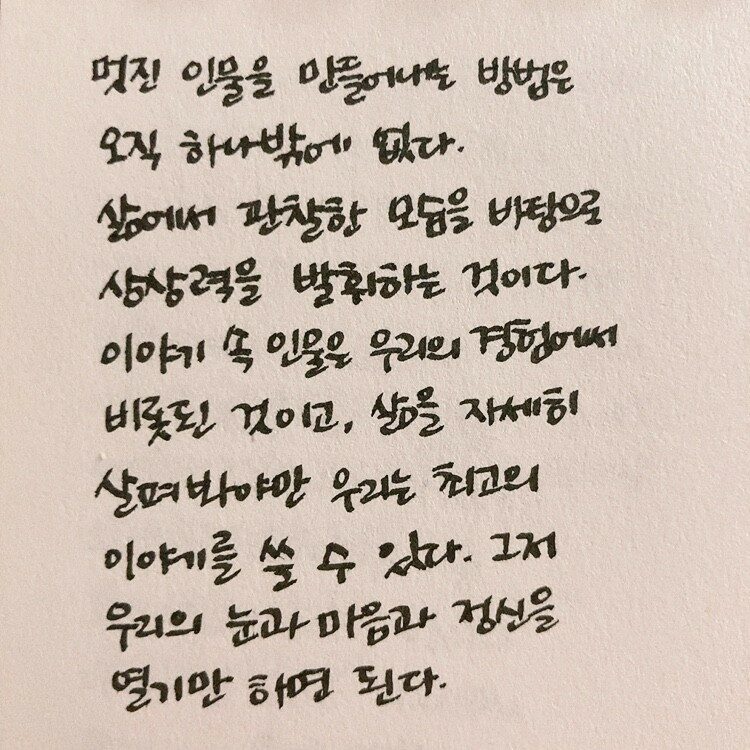 멋진 인물을 만들어내는 방법은
오직 하나밖에 없다.
삶에서 관찰한 모습을 바탕으로
상상력을 발휘하는 것이다.
이야기 속 인물은 우리의 경험에서
비롯된 것이고, 삶을 자세히
살펴봐야만 우리는 최고의
이야기를 쓸 수 있다. 그저
우리의 눈과 마음과 정신을
열기만 하면 된다.